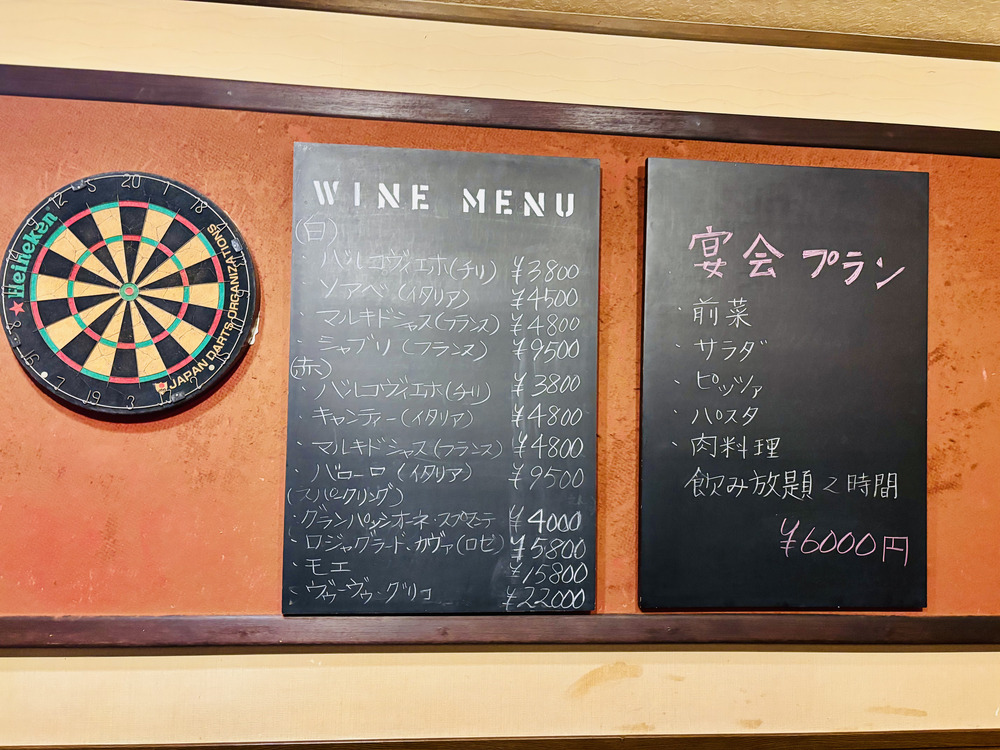 Heineken
JAPAN DARTS ORGANIZATIONS
20
18
19
3
16
8
12
5
2
WINE MENU
(白)
・バルコヴィエホ(チリ) ¥3800
・ソアベ(イタリア) ¥4500
・マルキドジャス(フランス) ¥4800
・シャブリ(フランス) ¥9500
(赤)
・バルコヴィエホ(チリ) ¥3800
・キャンティー(イタリア) ¥4800
・マルキドジャス(フランス) ¥4800
・バローロ(イタリア) ¥9500
(スパークリング)
・グランパッシオーネ・スプマンテ ¥4000
・ロジャグラード・カヴァ(ロゼ) ¥5800
・モエ ¥15800
・ヴーヴ・グリコ ¥22000
宴会プラン
・前菜
・サラダ
・ピッツァ
・パスタ
・肉料理
飲み放題2時間
¥6000円